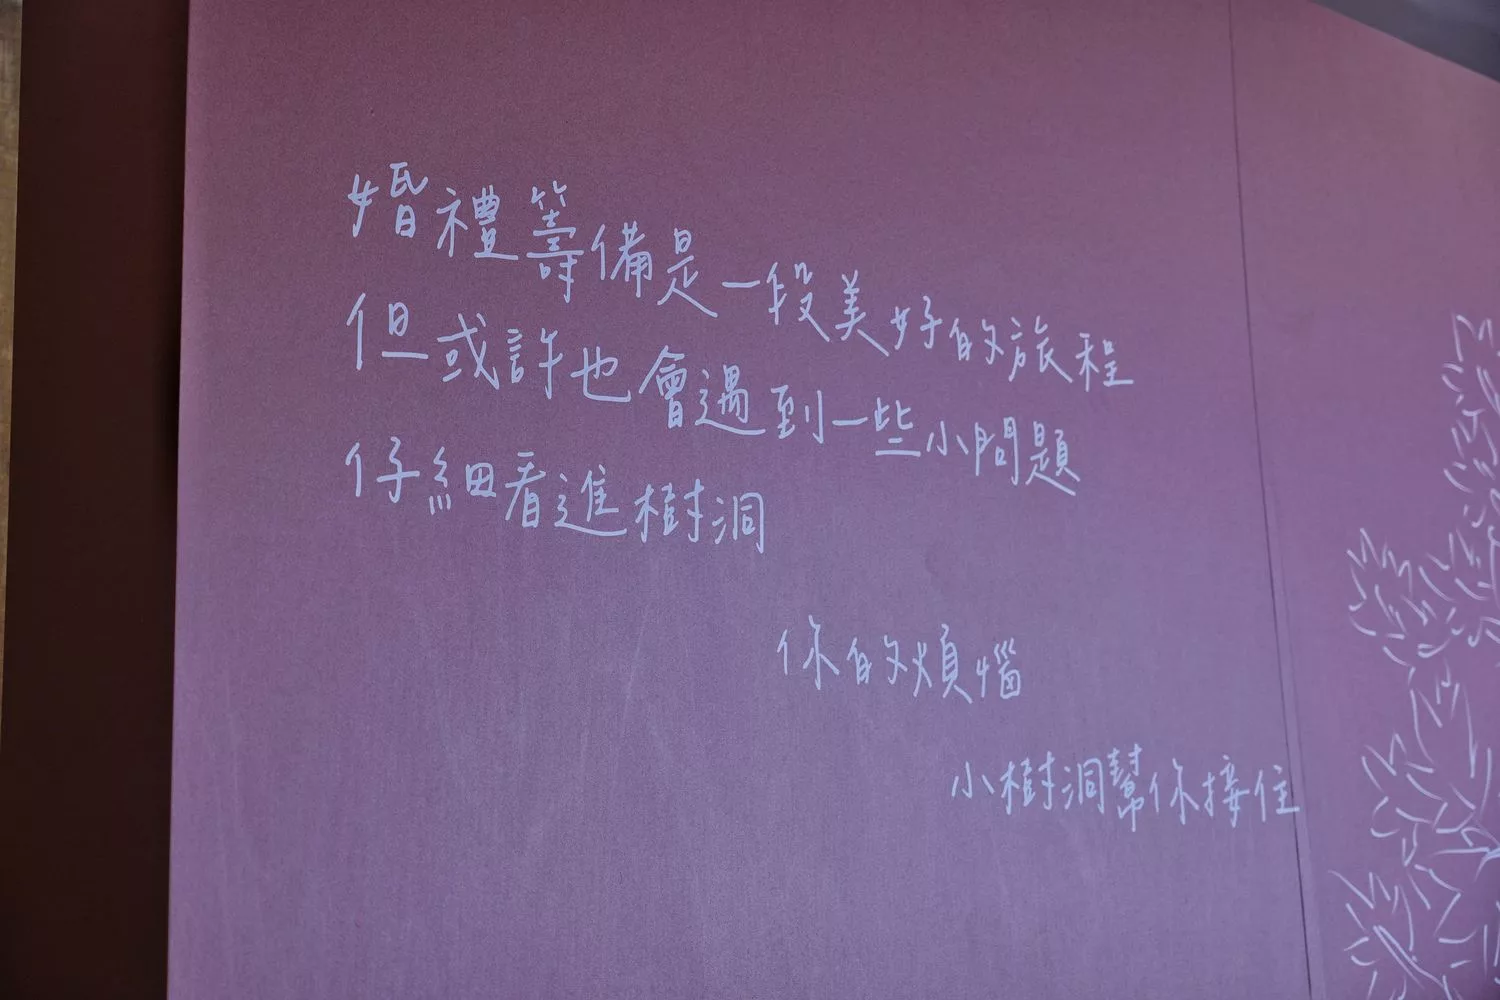 婚禮籌備是一段美好的旅程
但或許也會遇到一些小問題
仔細看進樹洞
你的煩惱
小樹洞幫你接住